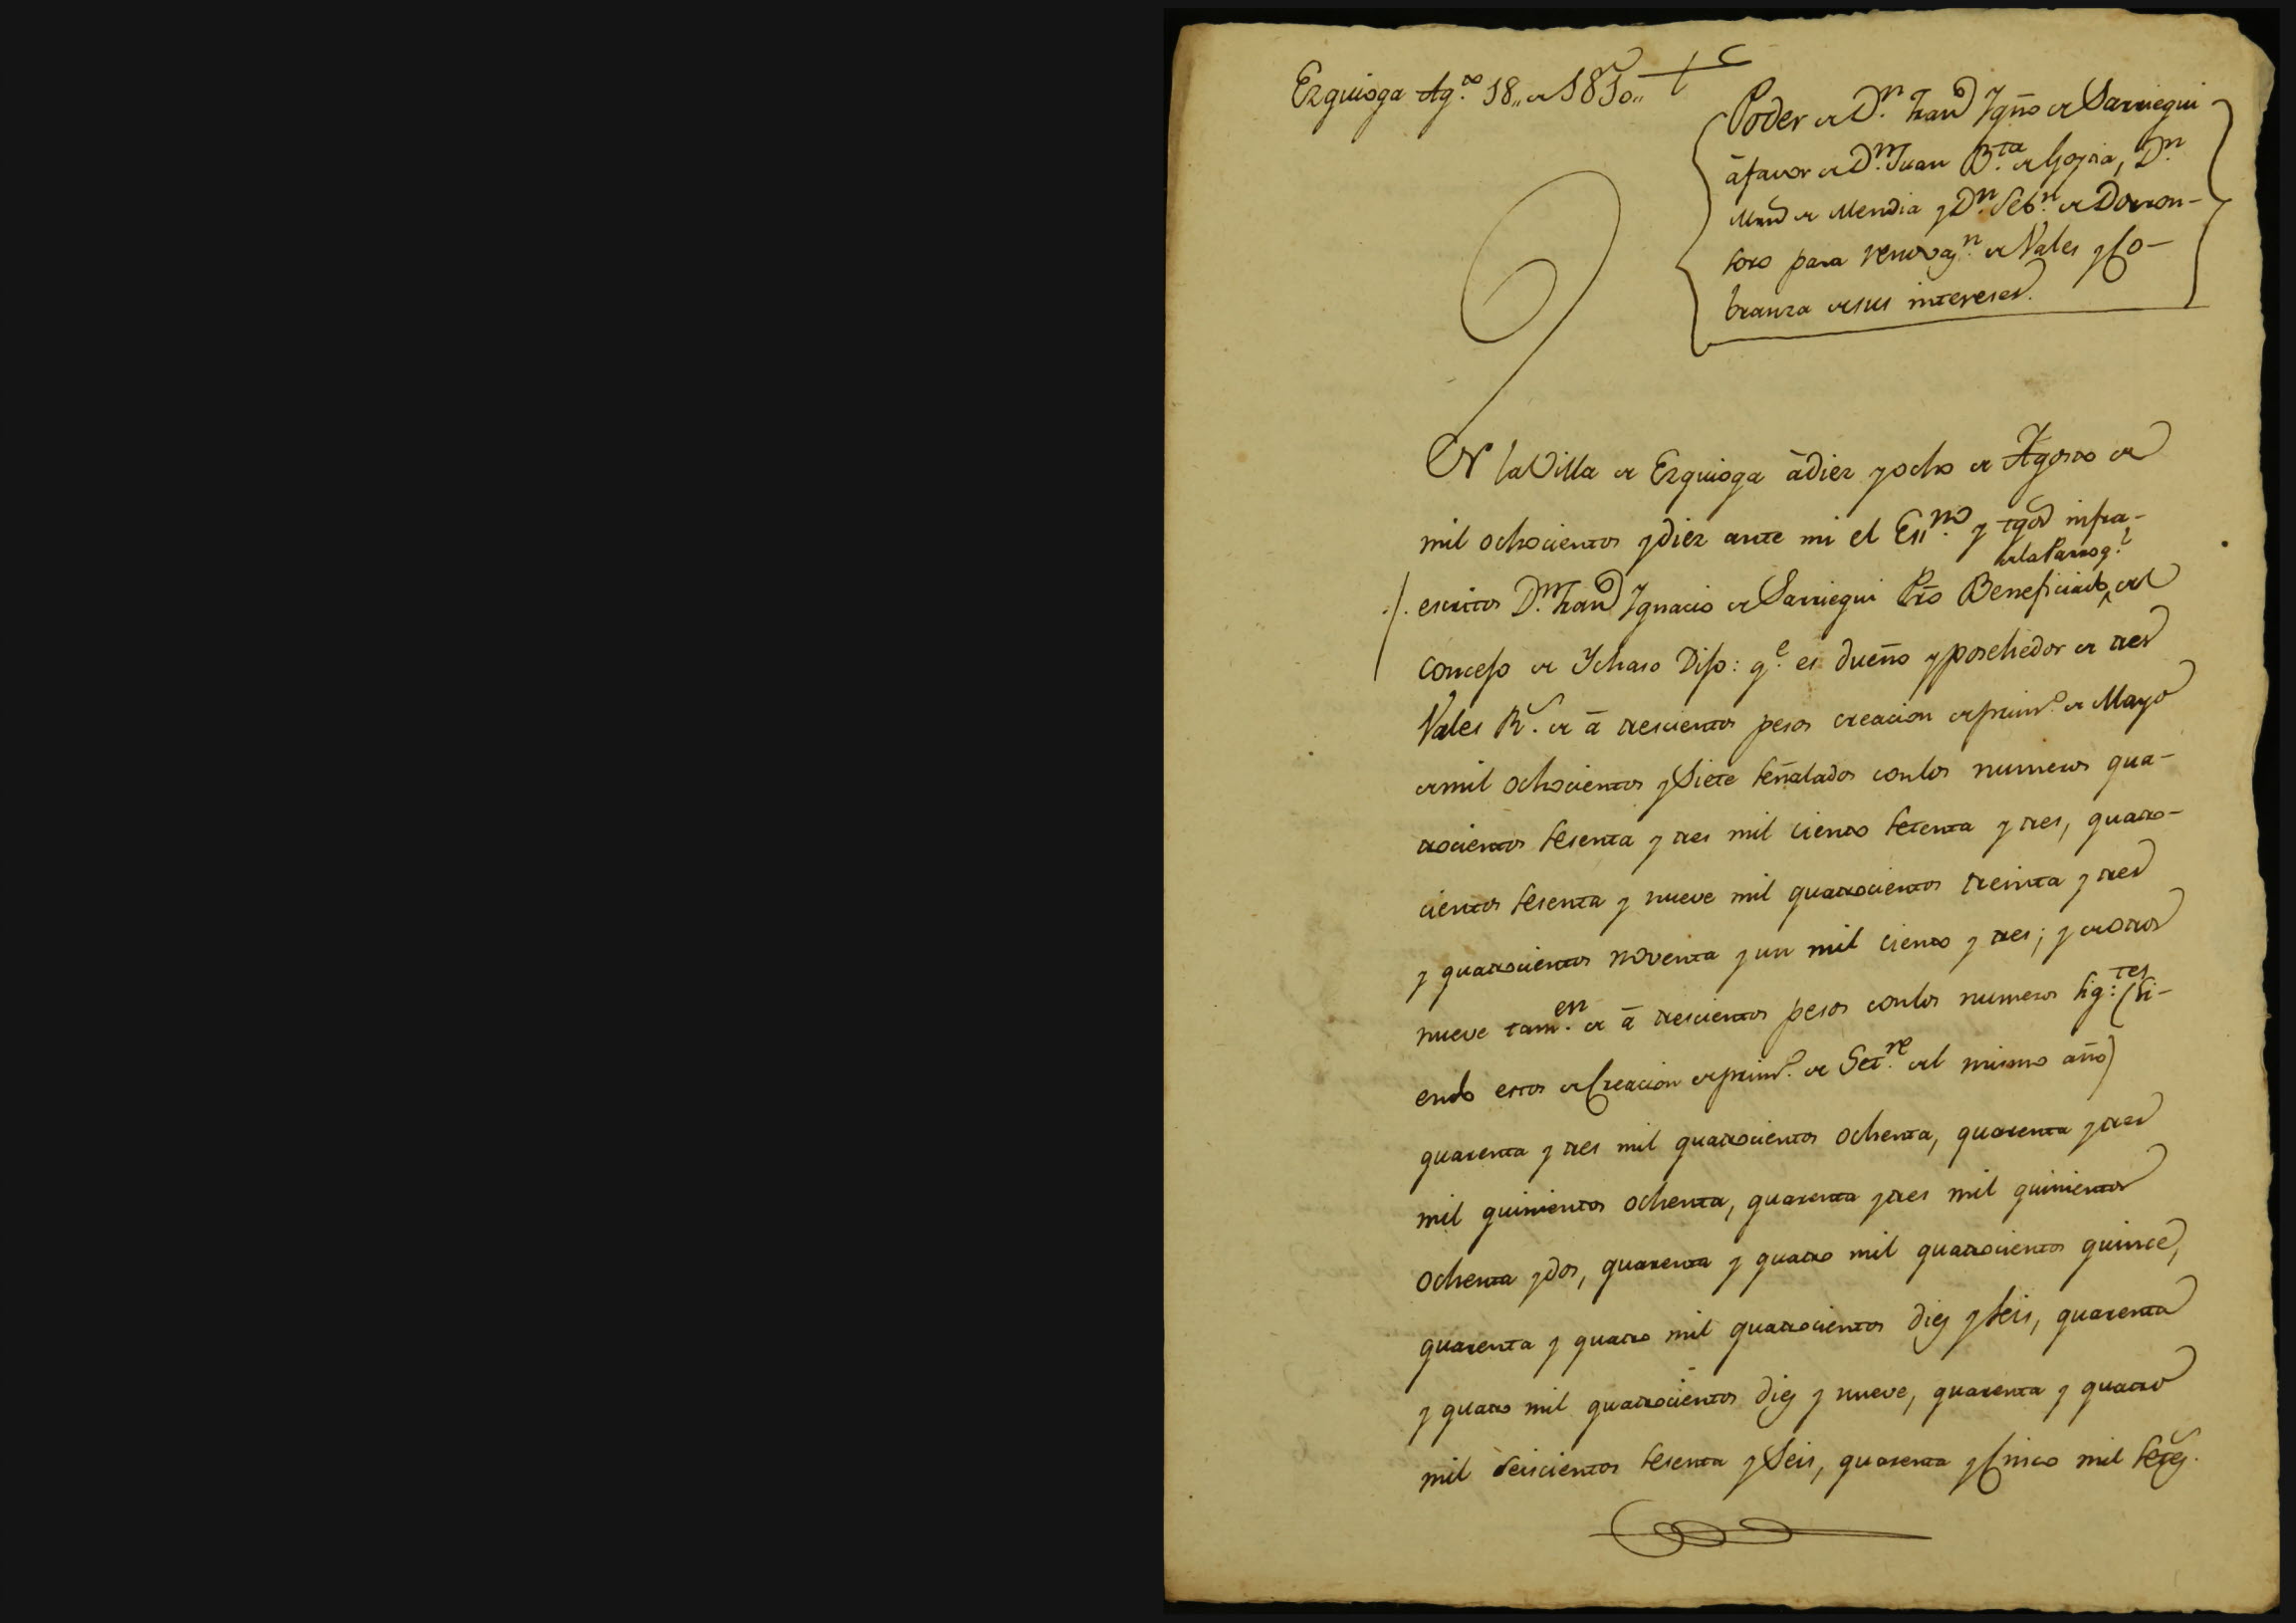 Ezquioga Ag.to 18,, de 1810,,
Poder de D.n Fran.co Ygñō de Sarriegui
á favor de D.n Juan B.ta de Goyria, D.n
Man.l de Mendia y D.n Seb.n de Dorron-
soro para renovaz.n de Vales y Co-
branza de sus intereses.
EN la Villa de Ezquioga á diez y ocho de Agosto de
mil ochocientos y diez ante mi el Ess.no y tgos infra-
de la Parroq.l
escritos D.n Fran.co Ygnacio de Sarriegui Pr̄o Beneficiado, del
concejo de Ychaso Dijo: q.e es dueño y posehedor de tres
Vales R.s de á trescientos pesos creacion de prim.o de Mayo
de mil ochocientos y Siete señalados con los numeros qua-
trocientos sesenta y tres mil ciento setenta y tres, quatro-
cientos sesenta y nueve mil quatrocientos treinta y tres
y quatrocientos noventa y un mil ciento y tres; y de otros
nueve tam.en de á trescientos pesos con los numeros sig.tes (Si-
endo estos de Creacion de prim.o de Set.re del mismo año)
quarenta y tres mil quatrocientos ochenta, quarenta y tres
mil quinientos ochenta, quarenta y tres mil quinientos
ochenta y dos, quarenta y quatro mil quatrocientos quince,
quarenta y quatro mil quatrocientos diez y seis, quarenta
y quatro mil quatrocientos diez y nueve, quarenta y quatro
mil seiscientos sesenta y Seis, quarenta y Cinco mil setez.s